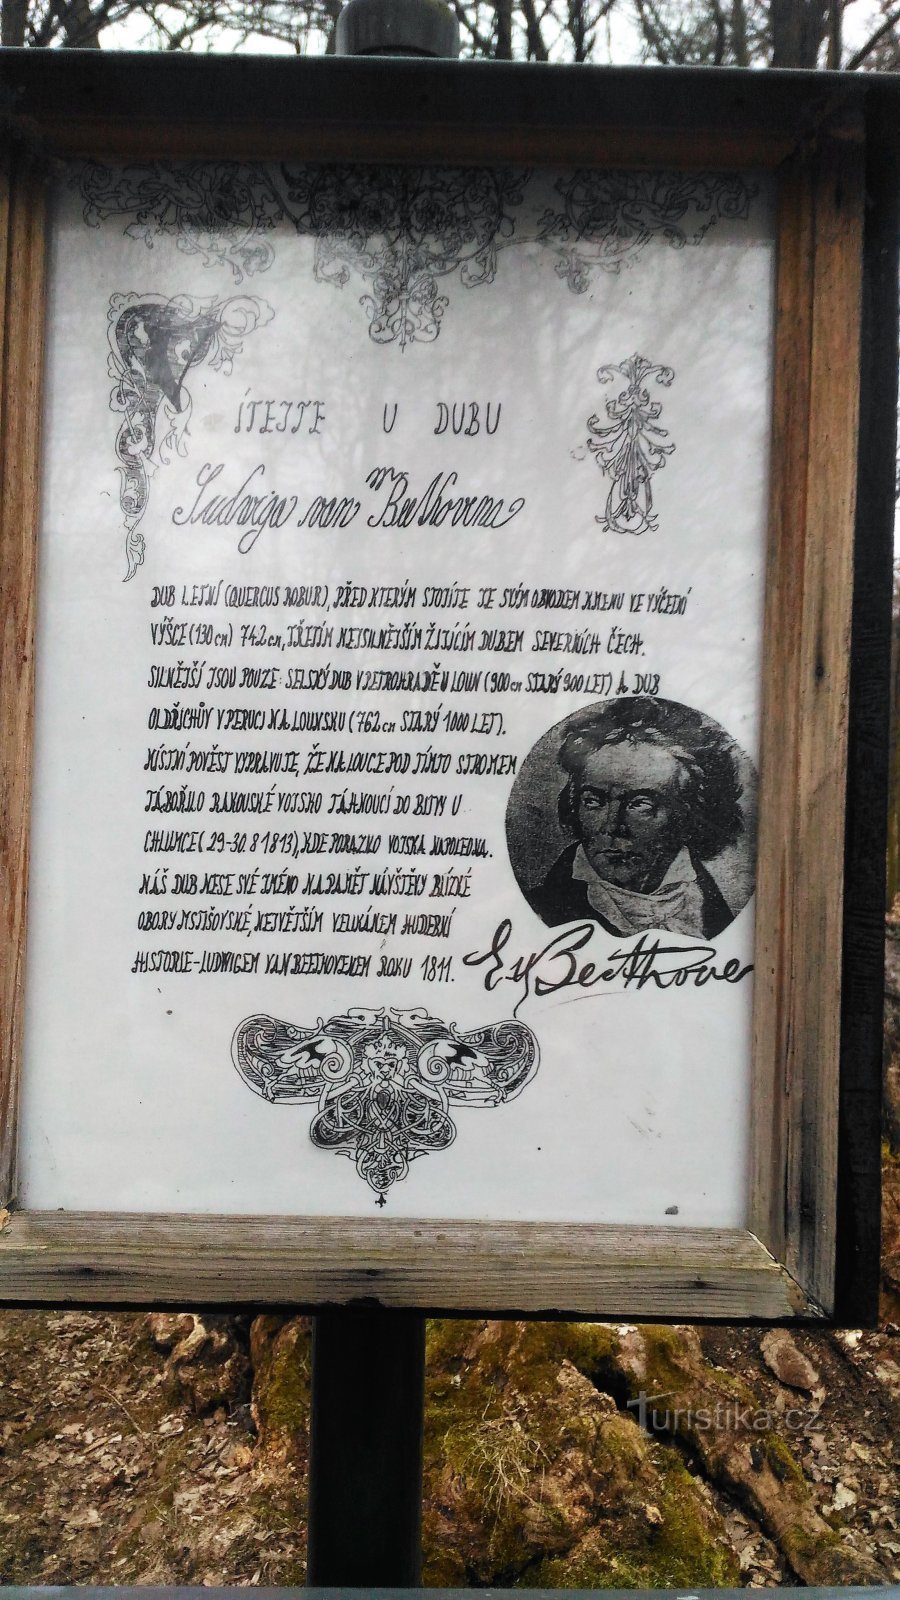 VÍTEJTE U DUBU
Ludwiga van Beethovena
DUB LETNÍ (QUERCUS ROBUR), PŘED KTERÝM STOJÍTE JE SVÝM OBVODEM KMENU VE VÝČETNÍ
VÝŠCE (130 cm) 742 cm, TŘETÍM NEJSILNĚJŠÍM ŽIJÍCÍM DUBEM SEVERNÍCH ČECH.
SILNĚJŠÍ JSOU POUZE: SELSKÝ DUB V PETROHRADĚ U LOUN (900 cm STARÝ 900 LET) A DUB
OLDŘICHŮV V PERUCI NA LOUNSKU (762 cm STARÝ 1000 LET).
MÍSTNÍ POVĚST VYPRAVUJE, ŽE NA LOUCE POD TÍMTO STROMEM
TÁBOŘILO RAKOUSKÉ VOJSKO TÁHNOUCÍ DO BITVY U
CHLUMCE (29-30. 8 1813), KDE PORAZILO VOJSKA NAPOLEONA.
NÁŠ DUB NESE SVÉ JMÉNO NA PAMĚT NÁVŠTĚVY BLÍZKÉ
OBORY MSTIŠOVSKÉ, NEJVĚTŠÍM VELIKÁNEM HUDEBNÍ
HISTORIE-LUDWIGEM VAN BEETHOVENEM ROKU 1811.
Beethoven
Turistika.cz